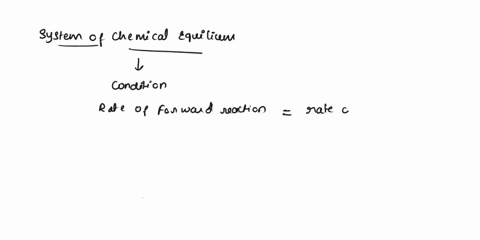 System of chemical Equilium
Condition
Rate of forward reaction = rate c